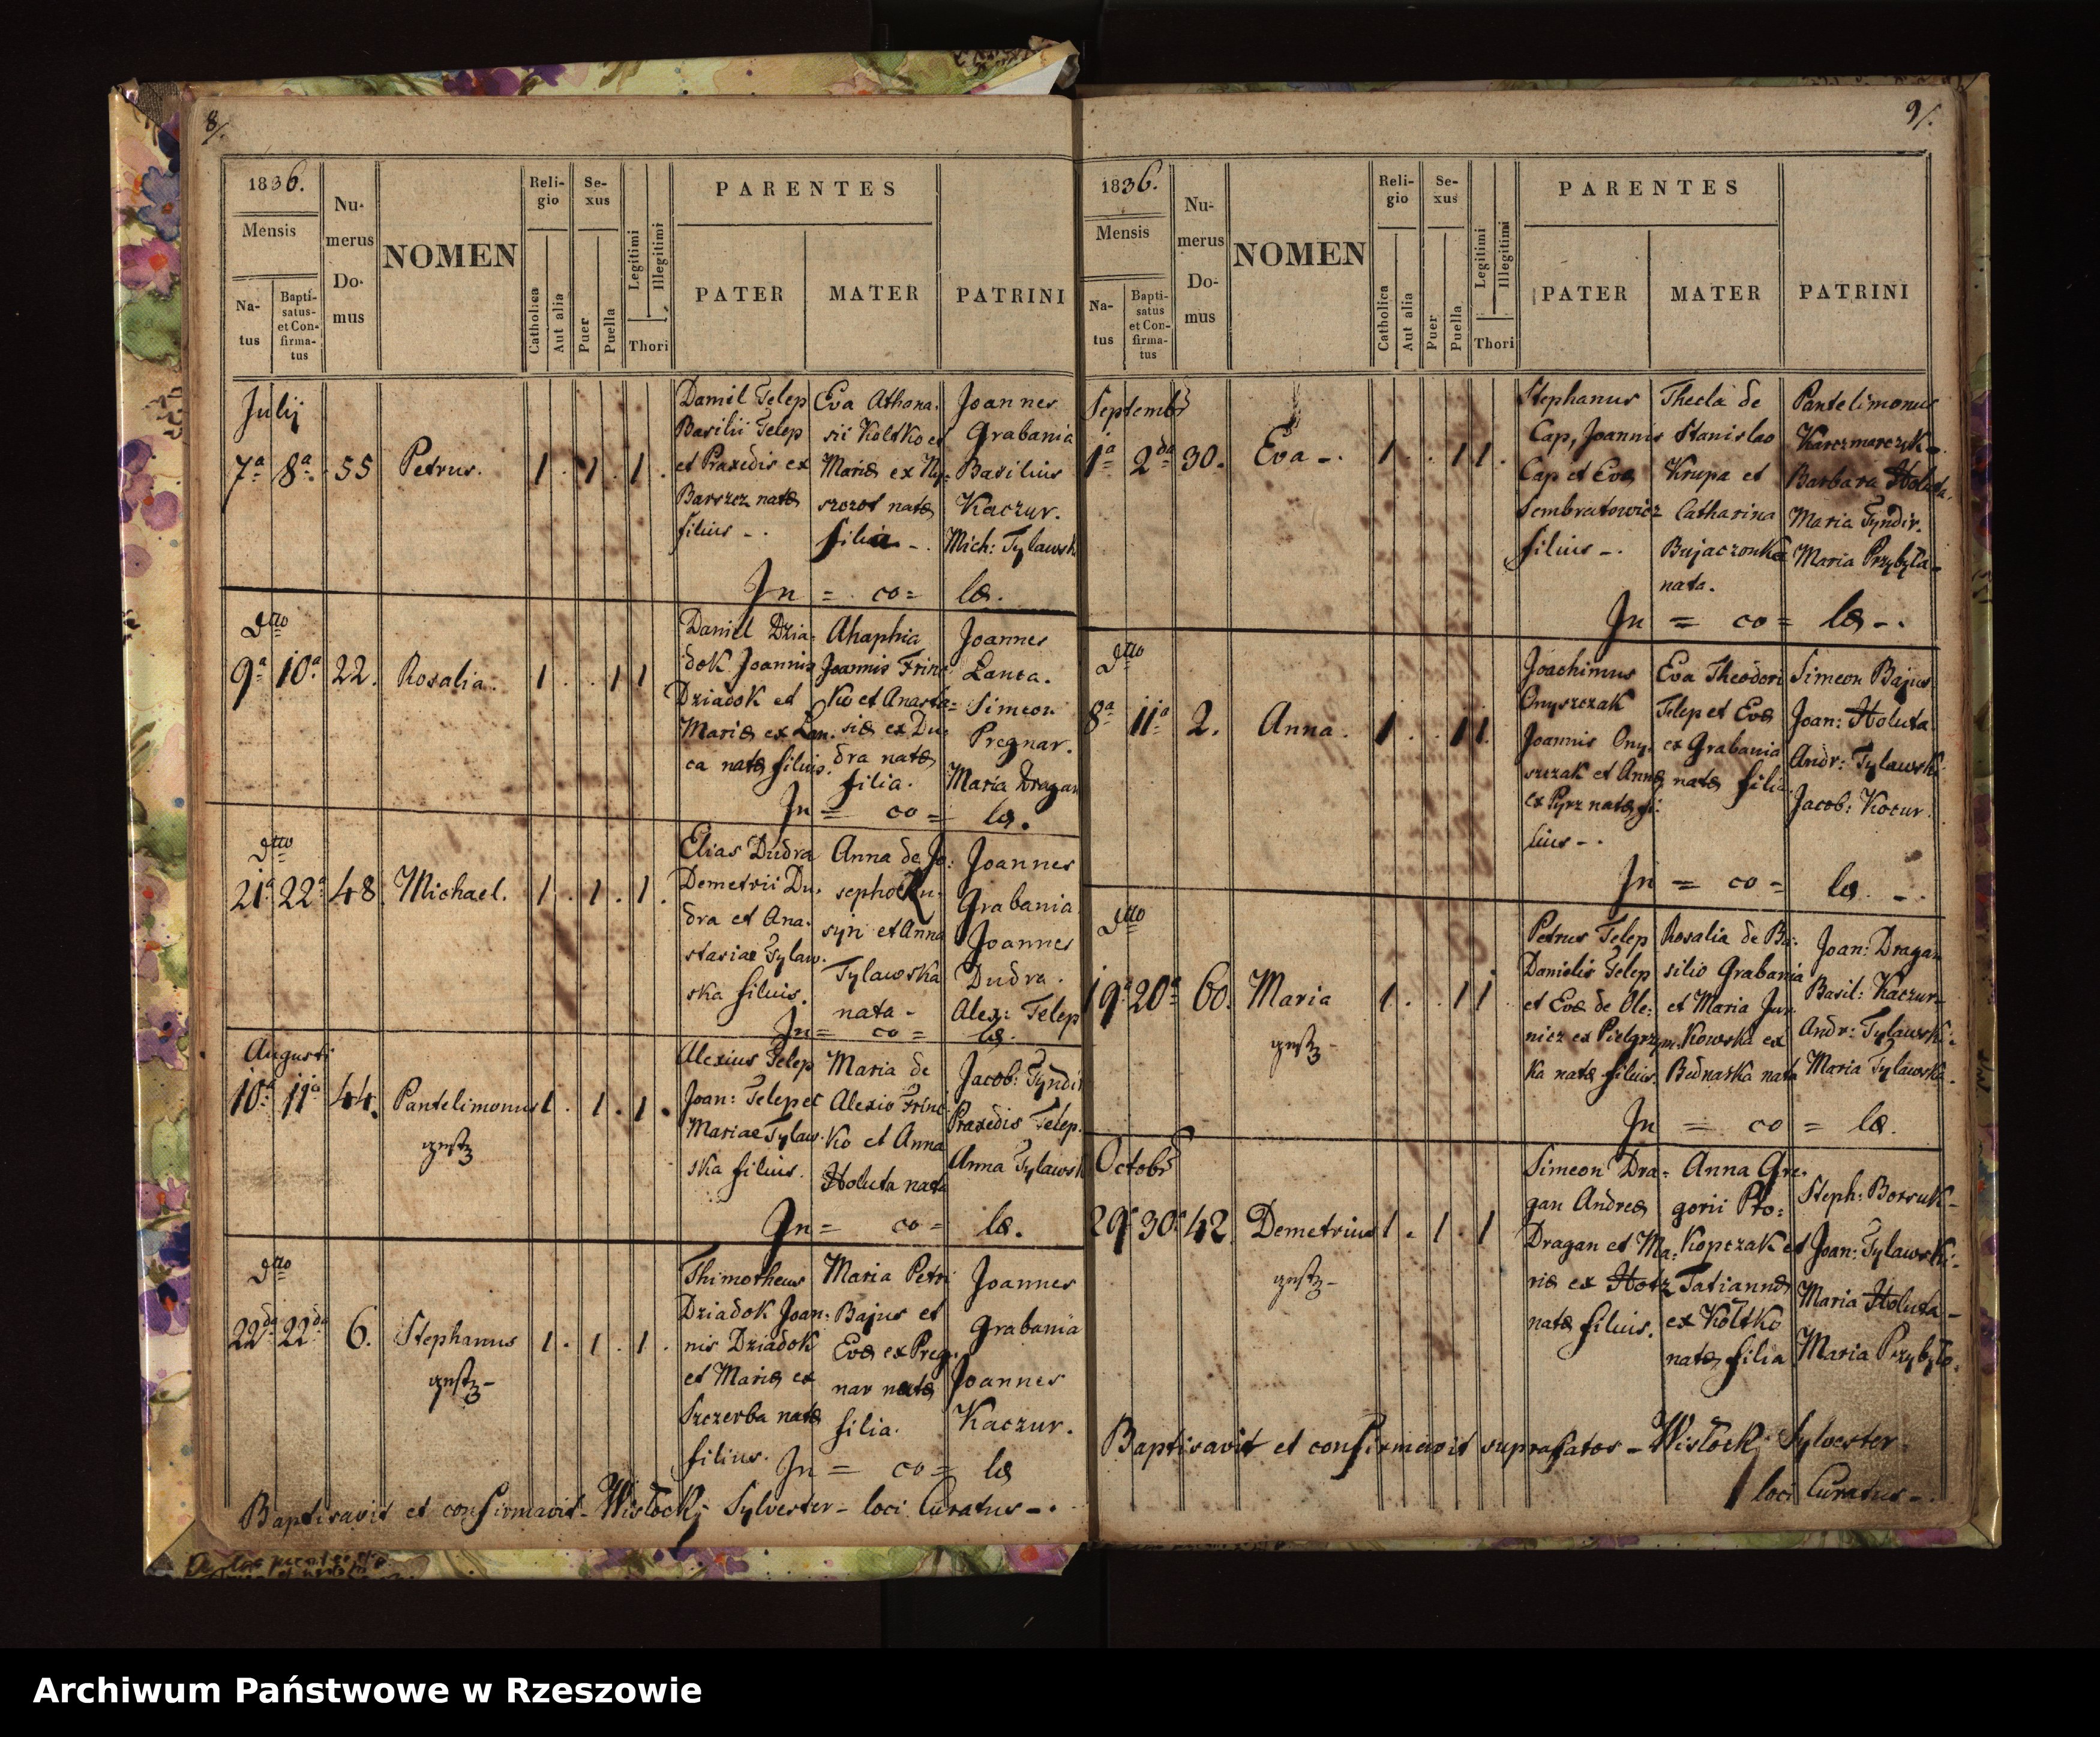 8/.
1836.
Mensis
Na-
tus
Bapti-
satus-
et Con-
firma-
tus
Nu-
merus
Do-
mus
NOMEN
Reli-
gio
Catholica
Aut alia
Se-
xus
Puer
Puella
Legitimi
Illegitimi
Thori
PARENTES
PATER
MATER
PATRINI
Julij
7ª 8ª 55 Petrus. 1 . 1 . 1 .
Daniil Telep
Basilii Telep
et Praxedis ex
Barszcz natæ
filius -.
Eva Athona.
sii Koltko et
Mariæ ex
natæ
filia -.
Joannes
Grabania
Basilius
Kaczur.
Mich: Tylawsk
In = co = læ.
dtto
9ª 10ª 22. Rosalia. 1 . . 1 1
Daniel Dzia-
dok Joannis
Dziadok et
Mariæ ex Lan-
ca natæ filius.
Ahaphia
Joannis Frinc
ko et Anasta-
siæ ex Du-
dra natæ
filia.
Joannes
Lanca.
Simeon
Pregnar.
Maria Dragan
In = co = læ.
dtto
21ª 22ª 48. Michael. 1 . 1 . 1 .
Elias Dudra
Demetrii Du-
dra et Ana-
stasiae Tylaw-
ska filius.
Anna de Jo:
sepho Ru-
syn et Anna
Tylawska
nata -
Joannes
Grabania
Joannes
Dudra.
Alex: Telep
In = co = læ.
Augusti
10ª 11ª 44. Pantelimonus 1 . 1 . 1 .
Alexius Telep
Joan: Telep et
Mariae Tylaw-
ska filius.
Maria de
Alexio Frinc-
ko et Anna
Holuta nata
Jacob: Tyndir
Praxedis Telep.
Anna Tylawsk
In = co = læ.
dtto
22dª 22dª 6. Stephanus 1 . 1 . 1 .
Thimotheus
Dziadok Joan-
nis Dziadok
et Mariæ ex
Szczerba natæ
filius.
Maria Petri
Bajus et
Evæ ex Preg-
nar natæ
filia.
Joannes
Grabania
Joannes
Kaczur.
In = co = læ
Baptisavit et confirmavit - Wisłocki Sylvester - loci Curatus -.
9/.
1836.
Mensis
Na-
tus
Bapti-
satus
et Con-
firma-
tus
Nu-
merus
Do-
mus
NOMEN
Reli-
gio
Catholica
Aut alia
Se-
xus
Puer
Puella
Legitimi
Illegitimi
Thori
PARENTES
PATER
MATER
PATRINI
Septembr
1ª 2dª 30. Eva -. 1 . . 1 1 .
Stephanus
Cap, Joannis
Cap et Evæ
Sembratowicz
filius -.
Thecla de
Stanislao
Krupa et
Catharina
Bujaczonka
nata.
Pantelimonus
Karczmarczyk -
Barbara Holuta.
Maria Tyndir.
Maria Przybyła -
In = co = læ -.
dtto
8ª 11ª 2. Anna. 1 . . 1 1.
Joachimus
Onyszczak
Joannis Ony-
szczak et Annæ
ex Pyrz natæ fi-
lius -.
Eva Theodori
Telep et Evæ
ex Grabania
natæ filia.
Simeon Bajus
Joan: Holuta
Andr: Tylawski
Jacob: Kocur.
In = co = læ -.
dtto
19ª 20ª 60. Maria 1 . . 1 1
Petrus Telep
Danielis Telep
et Evæ de Ole:
nicz ex Pielgrzym-
ka natæ filius.
Rosalia de Ba:
silio Grabania
et Maria Jur-
kowska ex
Bednarka nata
Joan: Dragan
Basil: Kaczur -
Andr: Tylawski.
Maria Tylawska.
In = co = læ.
Octobr
29ª 30ª 42. Demetrius 1 . 1 . 1
Simeon Dra-
gan Andreæ
Dragan et Ma-
riæ ex Hotz
natæ filius.
Anna Gre-
gorii Pro:
kopczak et
Tatiannæ
ex Koltko
natæ filia
Steph: Borsuk -
Joan: Tylawski.
Maria Holuta -
Maria Przybyło.
Baptisavit et confirmavit suprafatos - Wisłocki Sylvester.
loci Curatus -.
Archiwum Państwowe w Rzeszowie